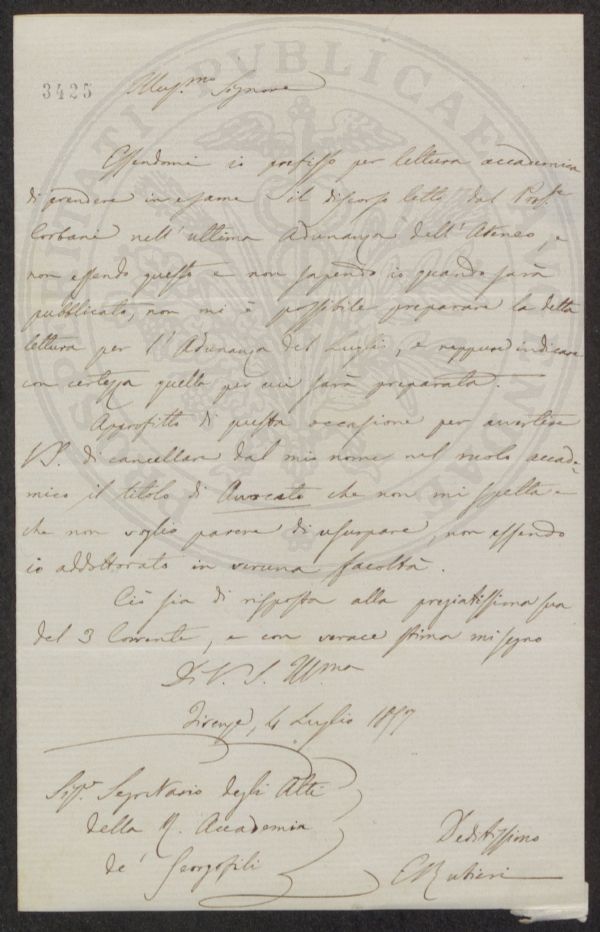 PROSPERITATI PUBLICAE AUGENDAE
3425
Illus.mo Signore
Essendomi io prefisso per lettura accademica
di prendere in esame il discorso letto dal Prof.e
Corbani nell'ultima Adunanza dell'Ateneo, e
non essendo questo e non sapendo io quando sarà
pubblicato, non mi è possibile preparare la detta
lettura per l'Adunanza del Luglio, e neppure indicare
con certezza quella per cui sarà preparata.
Approfitto di questa occasione per avvertire
V.S. di cancellare dal mio nome nel ruolo accade-
mico il titolo di Avvocato che non mi spetta e
che non voglio parere di usurpare, non essendo
io addottorato in veruna facoltà.
Ciò sia di risposta alla pregiatissima sua
del 3 Corrente, e con verace stima mi segno
Di V. S. Ill.ma
Firenze, 4 Luglio 1857
Sig.r Segretario degli Atti
della R. Accademia
de' Georgofili
Devotissimo
C Rubieri